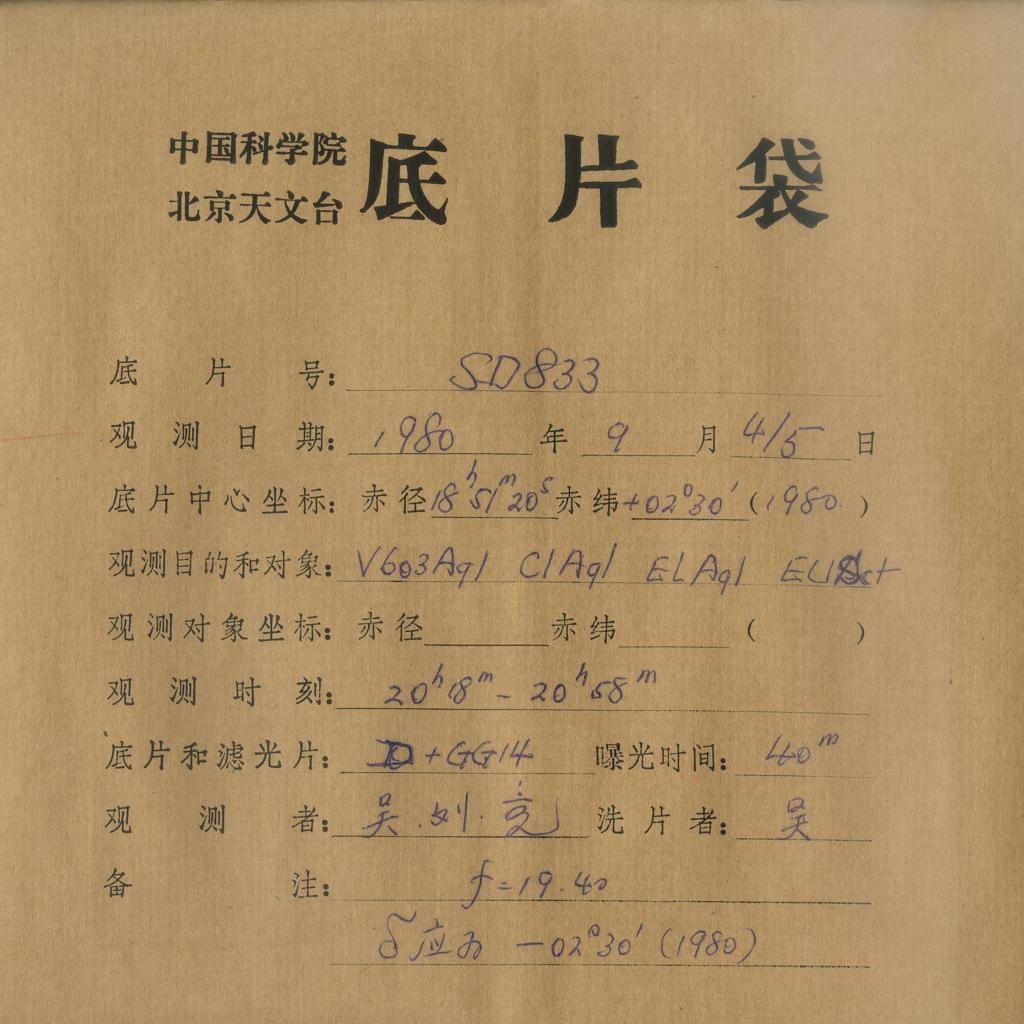 中国科学院
北京天文台
底片袋
底片号: SD833
观测日期: 1980 年 9 月 4/5 日
底片中心坐标: 赤径 18h51m20s 赤纬 +02°30′ (1980.)
观测目的和对象: V603Aql CIAql ELAql EUSct
观测对象坐标: 赤径 赤纬 ( )
观测时刻: 20h18m - 20h58m
底片和滤光片: D+GG14 曝光时间: 40m
观测者: 吴.刘.竞 洗片者: 吴
备注: f=19.40
δ应为 -02°30′ (1980)